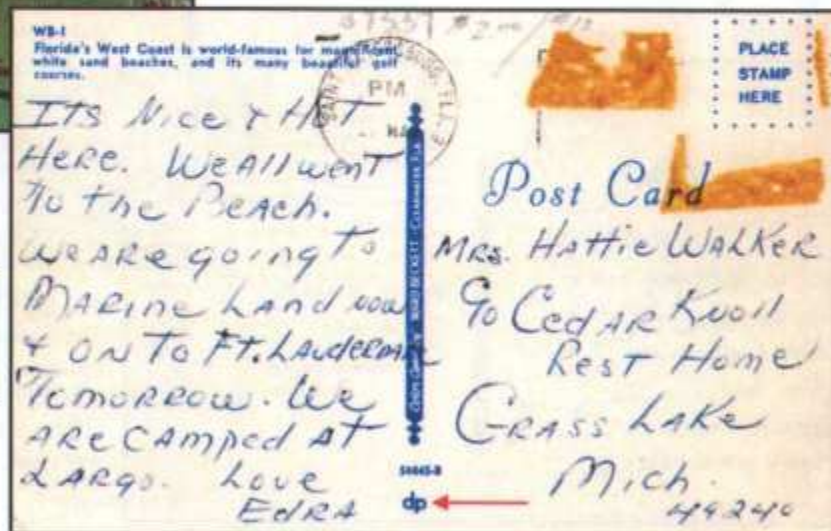 WB-1
Florida's West Coast is world-famous for magnificent
white sand beaches, and its many beautiful golf
courses.
PM
PLACE
STAMP
HERE
Post Card
ITS Nice & HOT
Here. We All went
To the Beach.
We are going to
MARINE LAND now
& ON TO FT. LAUDERDALE
Tomorrow. We
ARE CAMPED AT
LARGO. Love
EDRA
WARD BECKETT - CLEARWATER, FLA.
54445-B
dp
MRS. HATTIE WALKER
c/o CEDAR KNOLL
REST HOME
GRASS LAKE
Mich.
49240